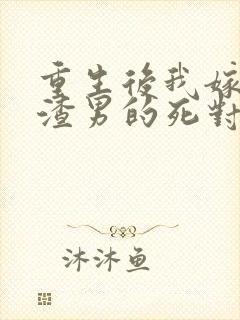 重生後我嫁
渣男的死對
沐沐鱼